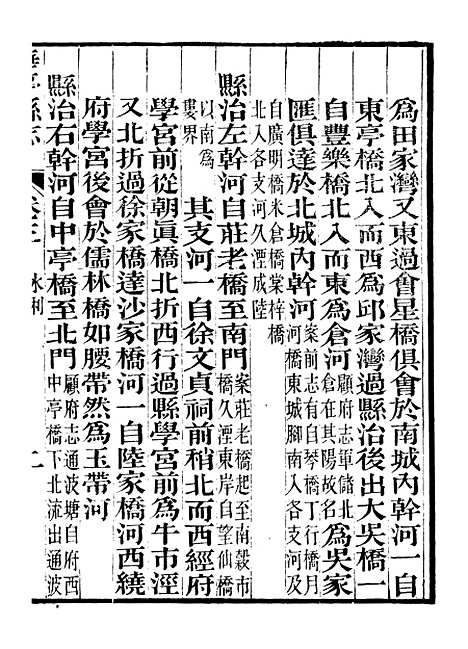 爲田家灣又東過會星橋俱會於南城內幹河一自
東亭橋北入而西爲邱家灣過縣治後出大吳橋一
自豐樂橋北入而東爲倉河顧府志軍儲北倉在其陽故名爲吳家
匯俱達於北城內幹河案前志有自琴橋丁行橋月河橋東城腳南入各支河及
自廣明橋米倉橋棠梓橋北入各支河久湮成陸
縣治左幹河自莊老橋至南門案莊老橋起至南穀市橋久湮東岸自望仙橋
以南爲婁界其支河一自徐文貞祠前稍北而西經府
學宮前從朝眞橋北折西行過縣學宮前爲牛市涇
又北折過徐家橋達沙家橋河一自陸家橋河西繞
府學宮後會於儒林橋如腰帶然爲玉帶河
縣治右幹河自中亭橋至北門顧府志通波塘自府西中亭橋下北流出通波
華亭縣志 卷三 水利 二